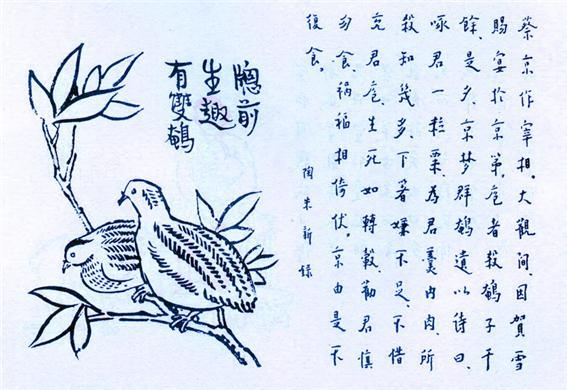 蔡京作宰相。大觀間因賀雪
賜宴於京第。庖者殺鵪子千
餘。是夕。京梦群鵪遺以詩曰。
啄君一粒粟。為君羹内肉。所
殺知幾多。下箸嫌不足。不惜
充君庖。生死如轉轂。勸君慎
勿食。禍福相倚伏。京由是不
復食。
陶朱新錄
牕前
生趣
有雙鵪